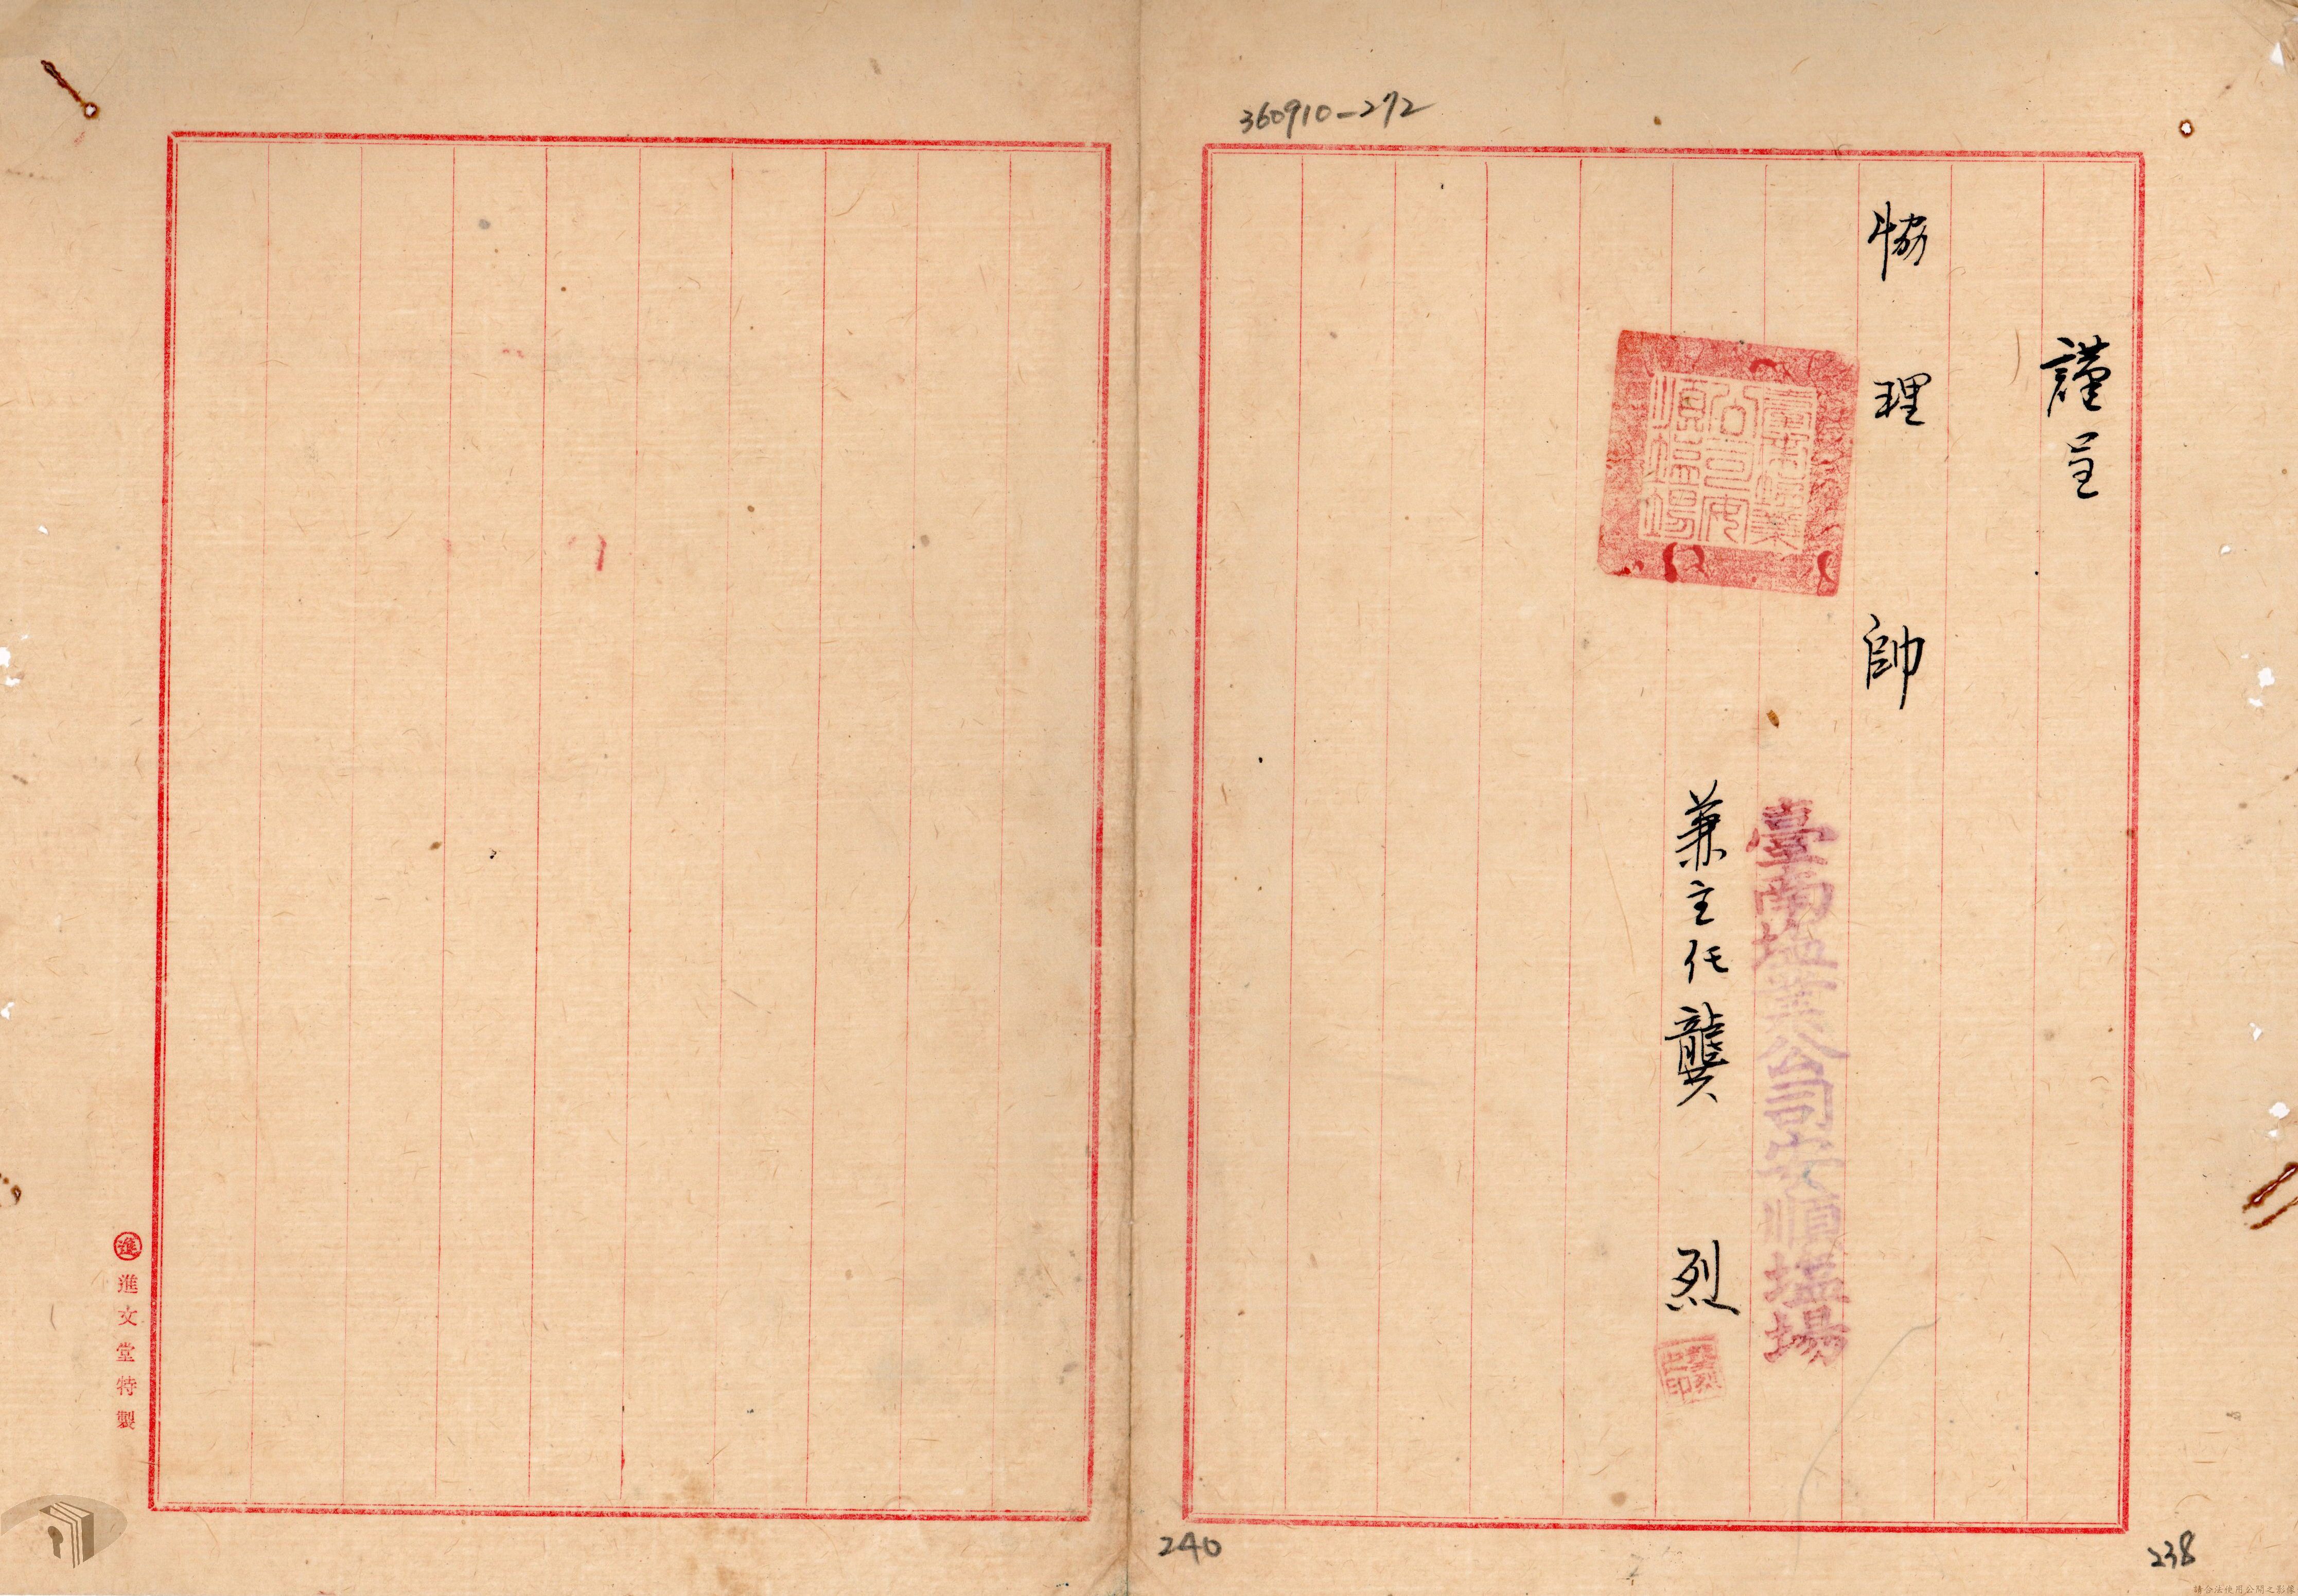 360910-272
謹呈
協理帥
臺南塩業公司安順塩場
兼主任龔烈
臺南鹽業
公司安
順塩場
之印
進
進文堂特製
240
238
請合法使用公開之影像